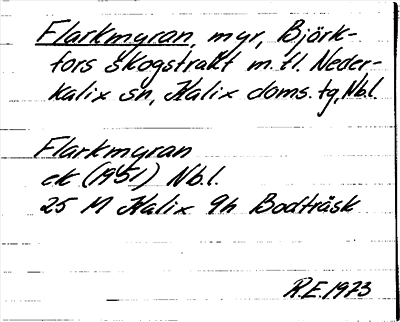 Flarkmyran, myr, Björk-
fors skogstrakt m.fl. Neder-
kalix sn, Kalix doms.tg, Nbl.
Flarkmyran
ek (1951) Nb.l.
25 M Kalix 9h Bodträsk
R.E. 1973